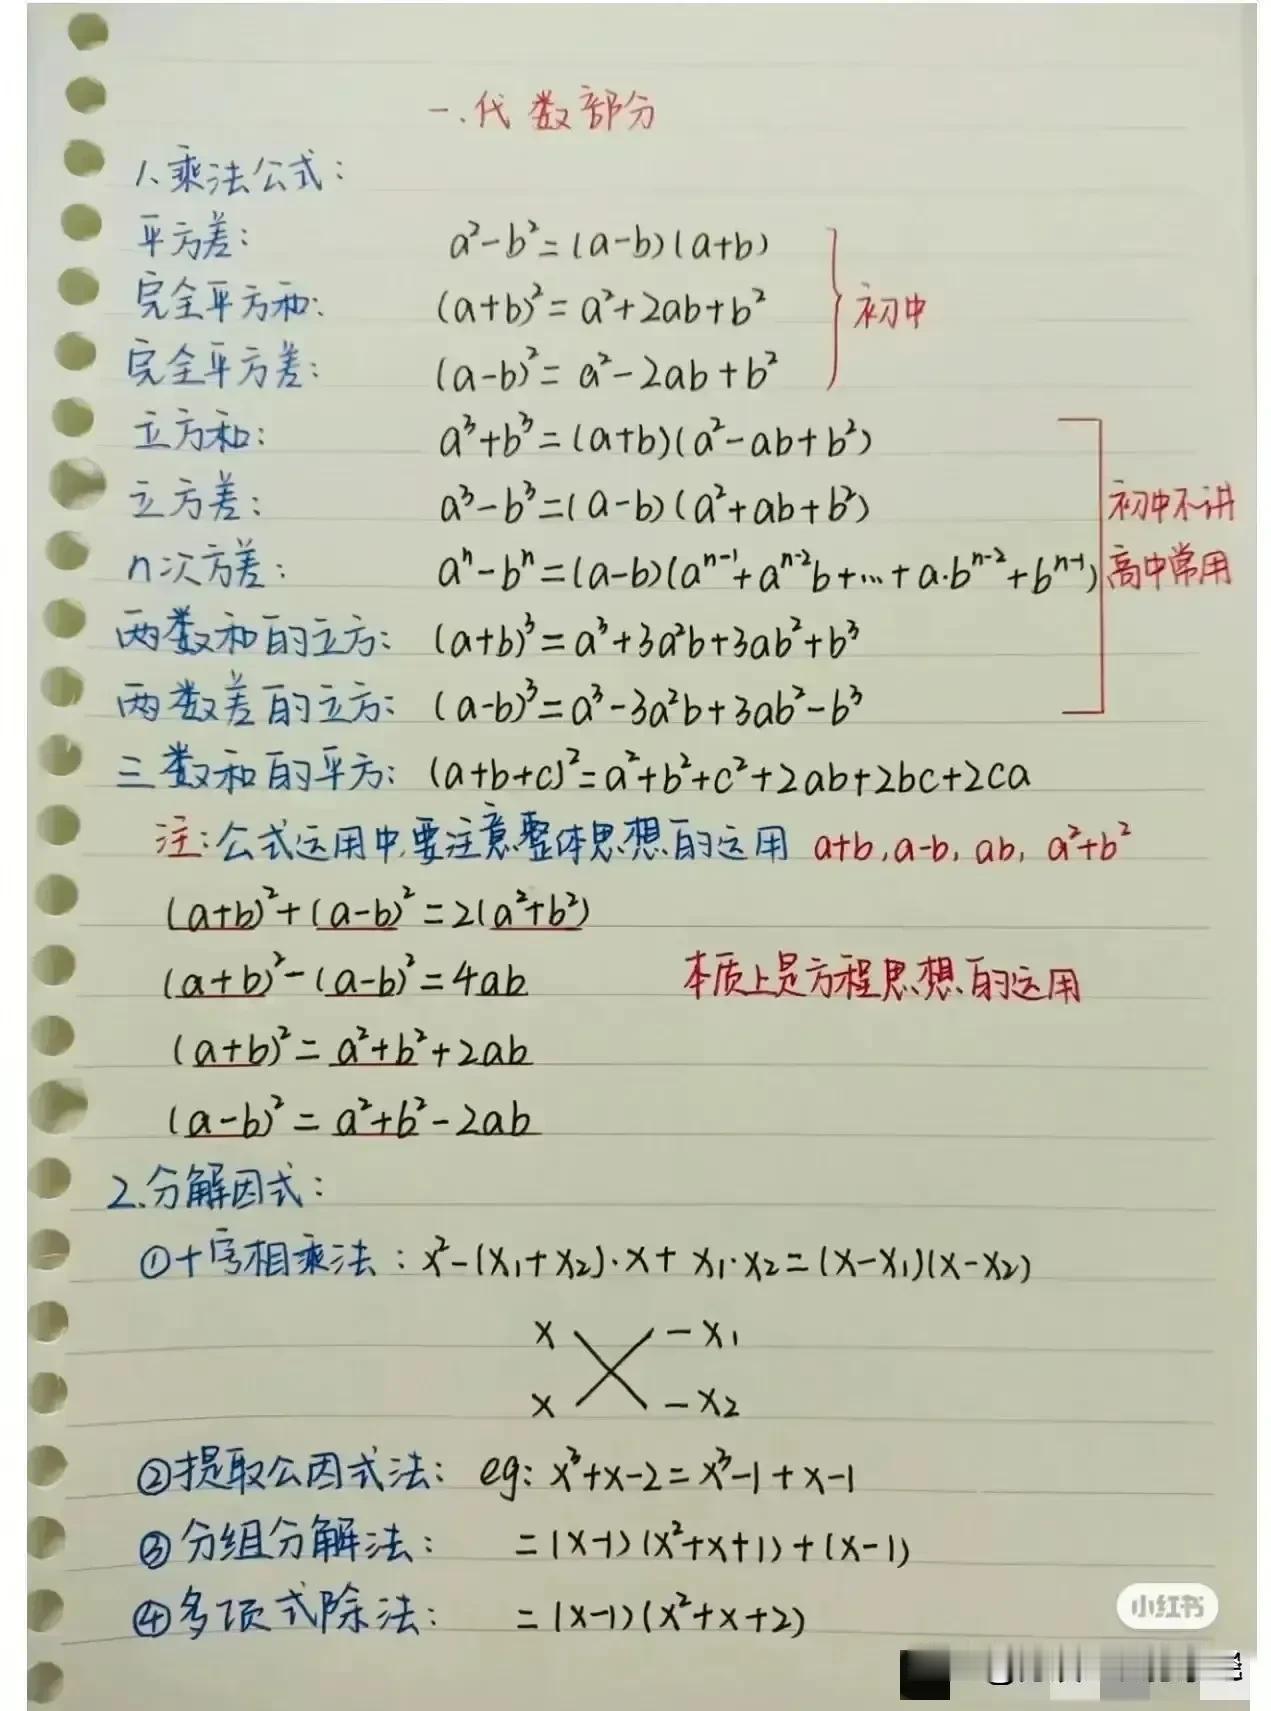 一.代数部分
1、乘法公式：
平方差： a²-b²=(a-b)(a+b)
完全平方和： (a+b)²=a²+2ab+b²
初中
完全平方差： (a-b)²=a²-2ab+b²
立方和： a³+b³=(a+b)(a²-ab+b²)
立方差： a³-b³=(a-b)(a²+ab+b²)
初中不讲
n次方差： aⁿ-bⁿ=(a-b)(aⁿ⁻¹+aⁿ⁻²b+…+a·bⁿ⁻²+bⁿ⁻¹)
高中常用
两数和的立方： (a+b)³=a³+3a²b+3ab²+b³
两数差的立方： (a-b)³=a³-3a²b+3ab²-b³
三数和的平方： (a+b+c)²=a²+b²+c²+2ab+2bc+2ca
注：公式运用中,要注意整体思想的运用 a+b,a-b,ab,a²+b²
(a+b)²+(a-b)²=2(a²+b²)
(a+b)²-(a-b)²=4ab 本质上是方程思想的运用
(a+b)²=a²+b²+2ab
(a-b)²=a²+b²-2ab
2.分解因式：
①十字相乘法：x²-(x₁+x₂)·x+x₁·x₂=(x-x₁)(x-x₂)
x -x₁
x -x₂
②提取公因式法： eg: x³+x-2=x³-1+x-1
③分组分解法： =(x-1)(x²+x+1)+(x-1)
④多项式除法： =(x-1)(x²+x+2)
小红书